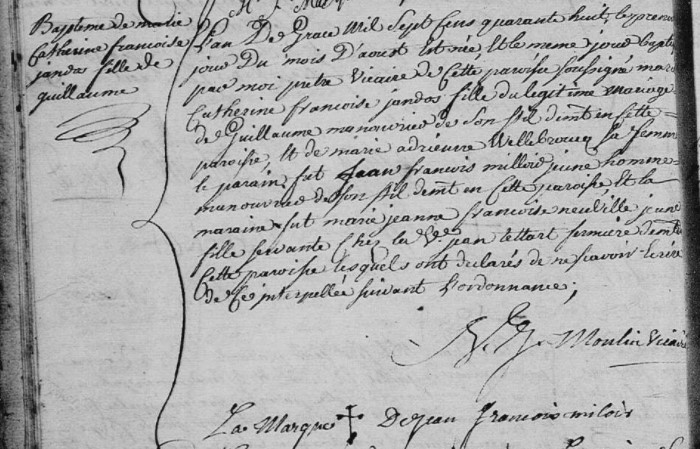 Bapteme de marie
Catherine francoise
jandos fille de
guillaume
L'an De Grace Mil Sept Cens quarante huit, le premier
jour Du mois D'aoust Est née, Et le meme jour bapt
par moi pretre Vicaire de Cette paroisse soussigné mar
Catherine francoise jandos fille du legitime mariage
de Guillaume manouvrier de son stil demt en cette
paroisse, Et de marie adrienne Wellebroucq sa femme
le parain fut Jean francois milloir jeune homme
manouvrier de son stil demt en cette paroisse Et la
maraine fut marie jeanne francoise neuville jeune
fille servante chez la Ve jean tettart fermiere demt
Cette paroisse lesquels ont declarés de ne scavoir Ecrire
de ce interpellée suivant L'ordonnance;
Moulin Vicaire
La Marque + De jean francois milois